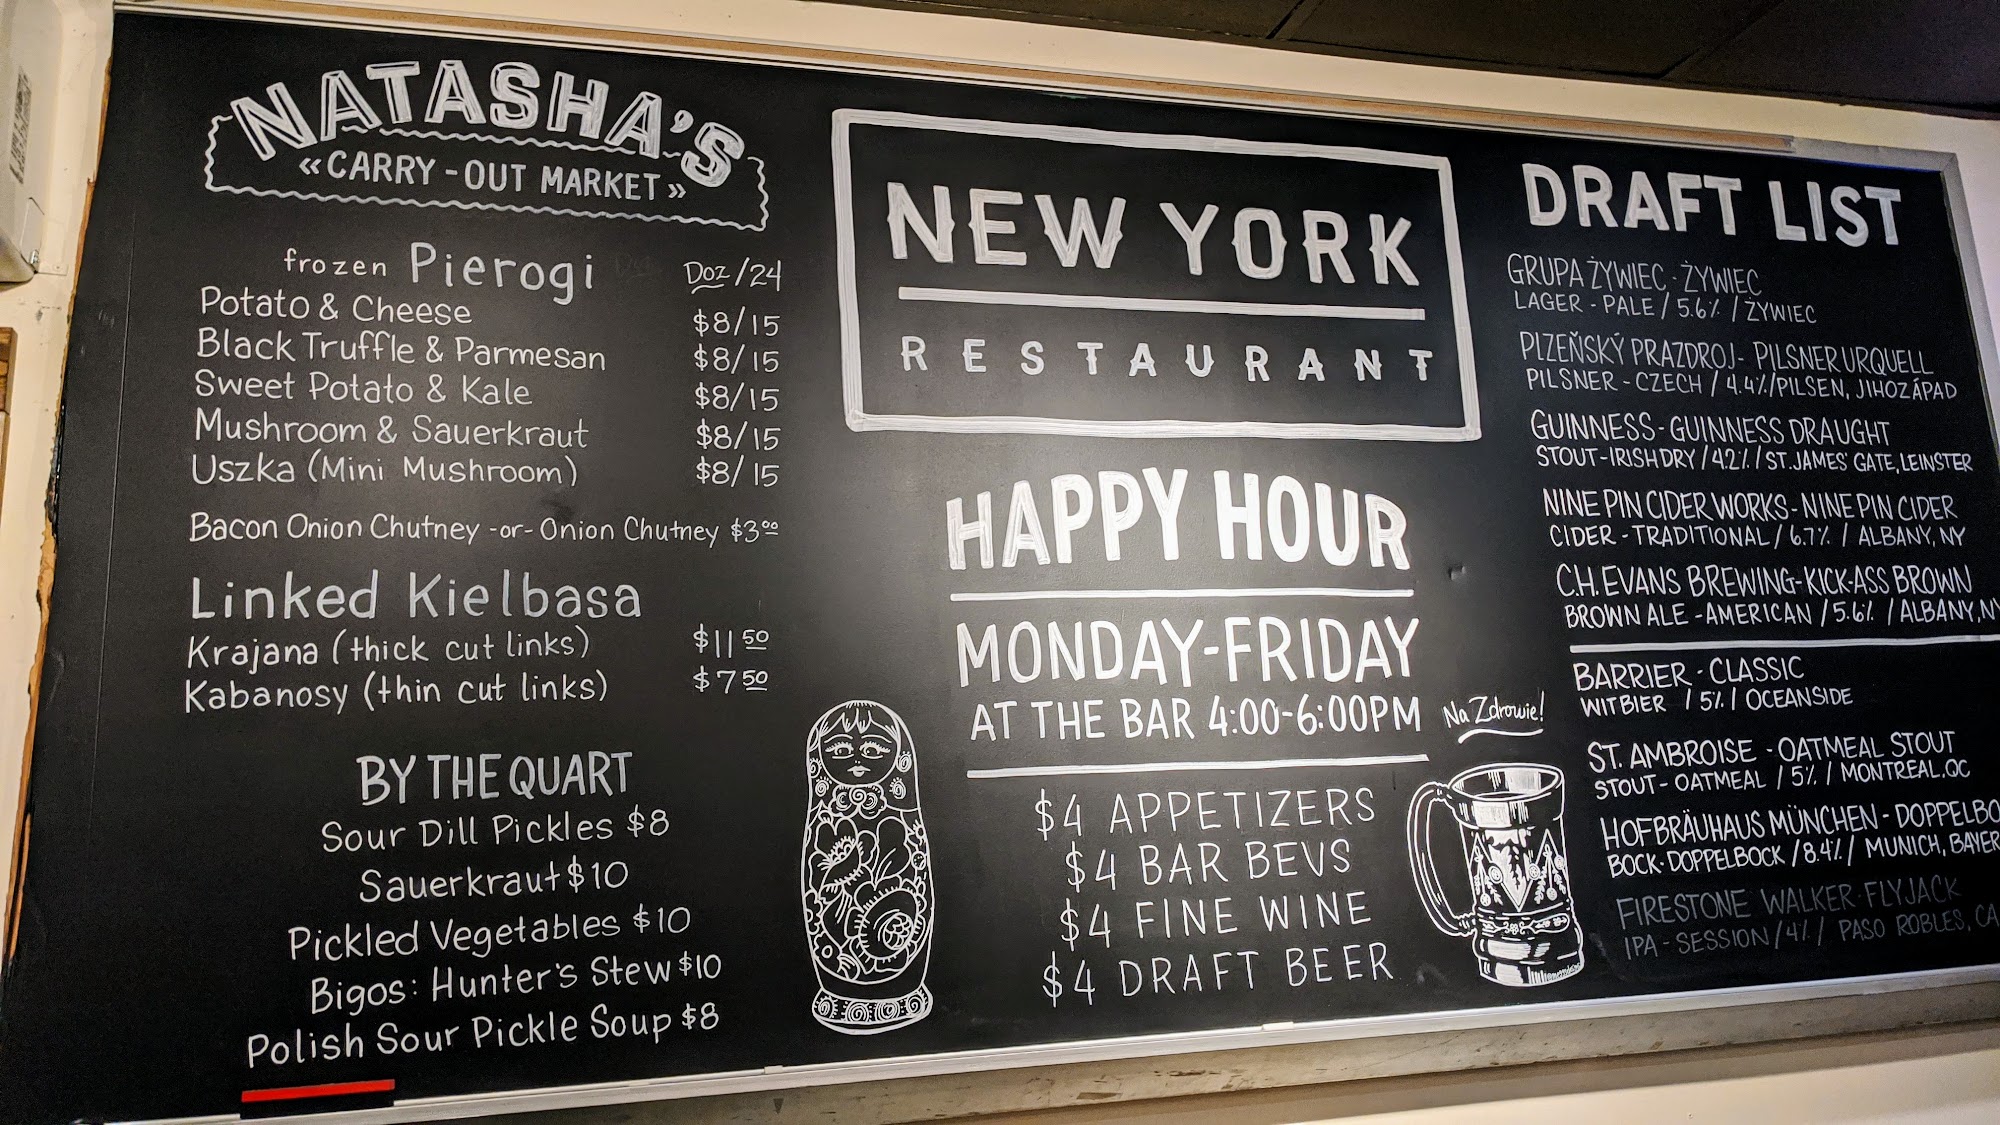 NATASHA'S
«CARRY-OUT MARKET»
frozen Pierogi Doz/24
Potato & Cheese $8/15
Black Truffle & Parmesan $8/15
Sweet Potato & Kale $8/15
Mushroom & Sauerkraut $8/15
Uszka (Mini Mushroom) $8/15
Bacon Onion Chutney -or- Onion Chutney $3.00
Linked Kielbasa
Krajana (thick cut links) $11 50
Kabanosy (thin cut links) $7 50
BY THE QUART
Sour Dill Pickles $8
Sauerkraut $10
Pickled Vegetables $10
Bigos: Hunter's Stew $10
Polish Sour Pickle Soup $8
NEW YORK
RESTAURANT
HAPPY HOUR
MONDAY-FRIDAY
AT THE BAR 4:00-6:00PM
$4 APPETIZERS
$4 BAR BEVS
$4 FINE WINE
$4 DRAFT BEER
Na Zdrowie!
DRAFT LIST
GRUPA ŻYWIEC - ŻYWIEC
LAGER - PALE / 5.6% / ŻYWIEC
PLZEŇSKÝ PRAZDROJ - PILSNER URQUELL
PILSNER - CZECH / 4.4% / PILSEN, JIHOZÁPAD
GUINNESS - GUINNESS DRAUGHT
STOUT-IRISH DRY / 4.2% / ST. JAMES' GATE, LEINSTER
NINE PIN CIDER WORKS - NINE PIN CIDER
CIDER - TRADITIONAL / 6.7% / ALBANY, NY
C.H. EVANS BREWING - KICK-ASS BROWN
BROWN ALE - AMERICAN / 5.6% / ALBANY, NY
BARRIER - CLASSIC
WITBIER / 5% / OCEANSIDE
ST. AMBROISE - OATMEAL STOUT
STOUT - OATMEAL / 5% / MONTREAL, QC
HOFBRÄUHAUS MÜNCHEN - DOPPELBO
BOCK - DOPPELBOCK / 8.4% / MUNICH, BAYER
FIRESTONE WALKER - FLYJACK
IPA - SESSION / 4% / PASO ROBLES, CA